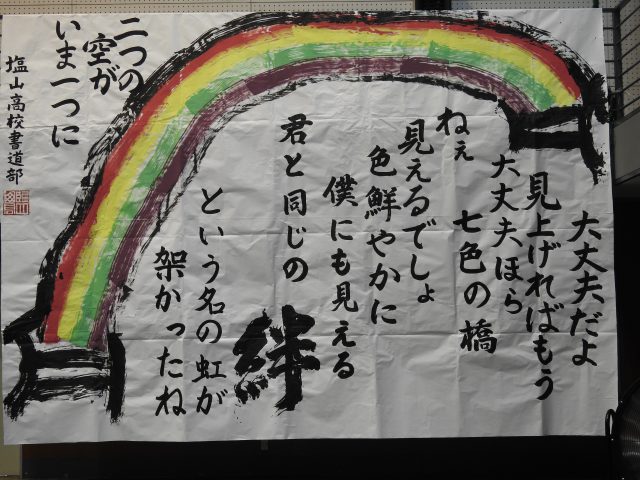 大丈夫だよ
見上げればもう
大丈夫ほら
七色の橋
ねぇ
見えるでしょ
色鮮やかに
僕にも見える
君と同じの
絆
という名の虹が
架かったね
二つの
空が
いま一つに
塩山高校書道部